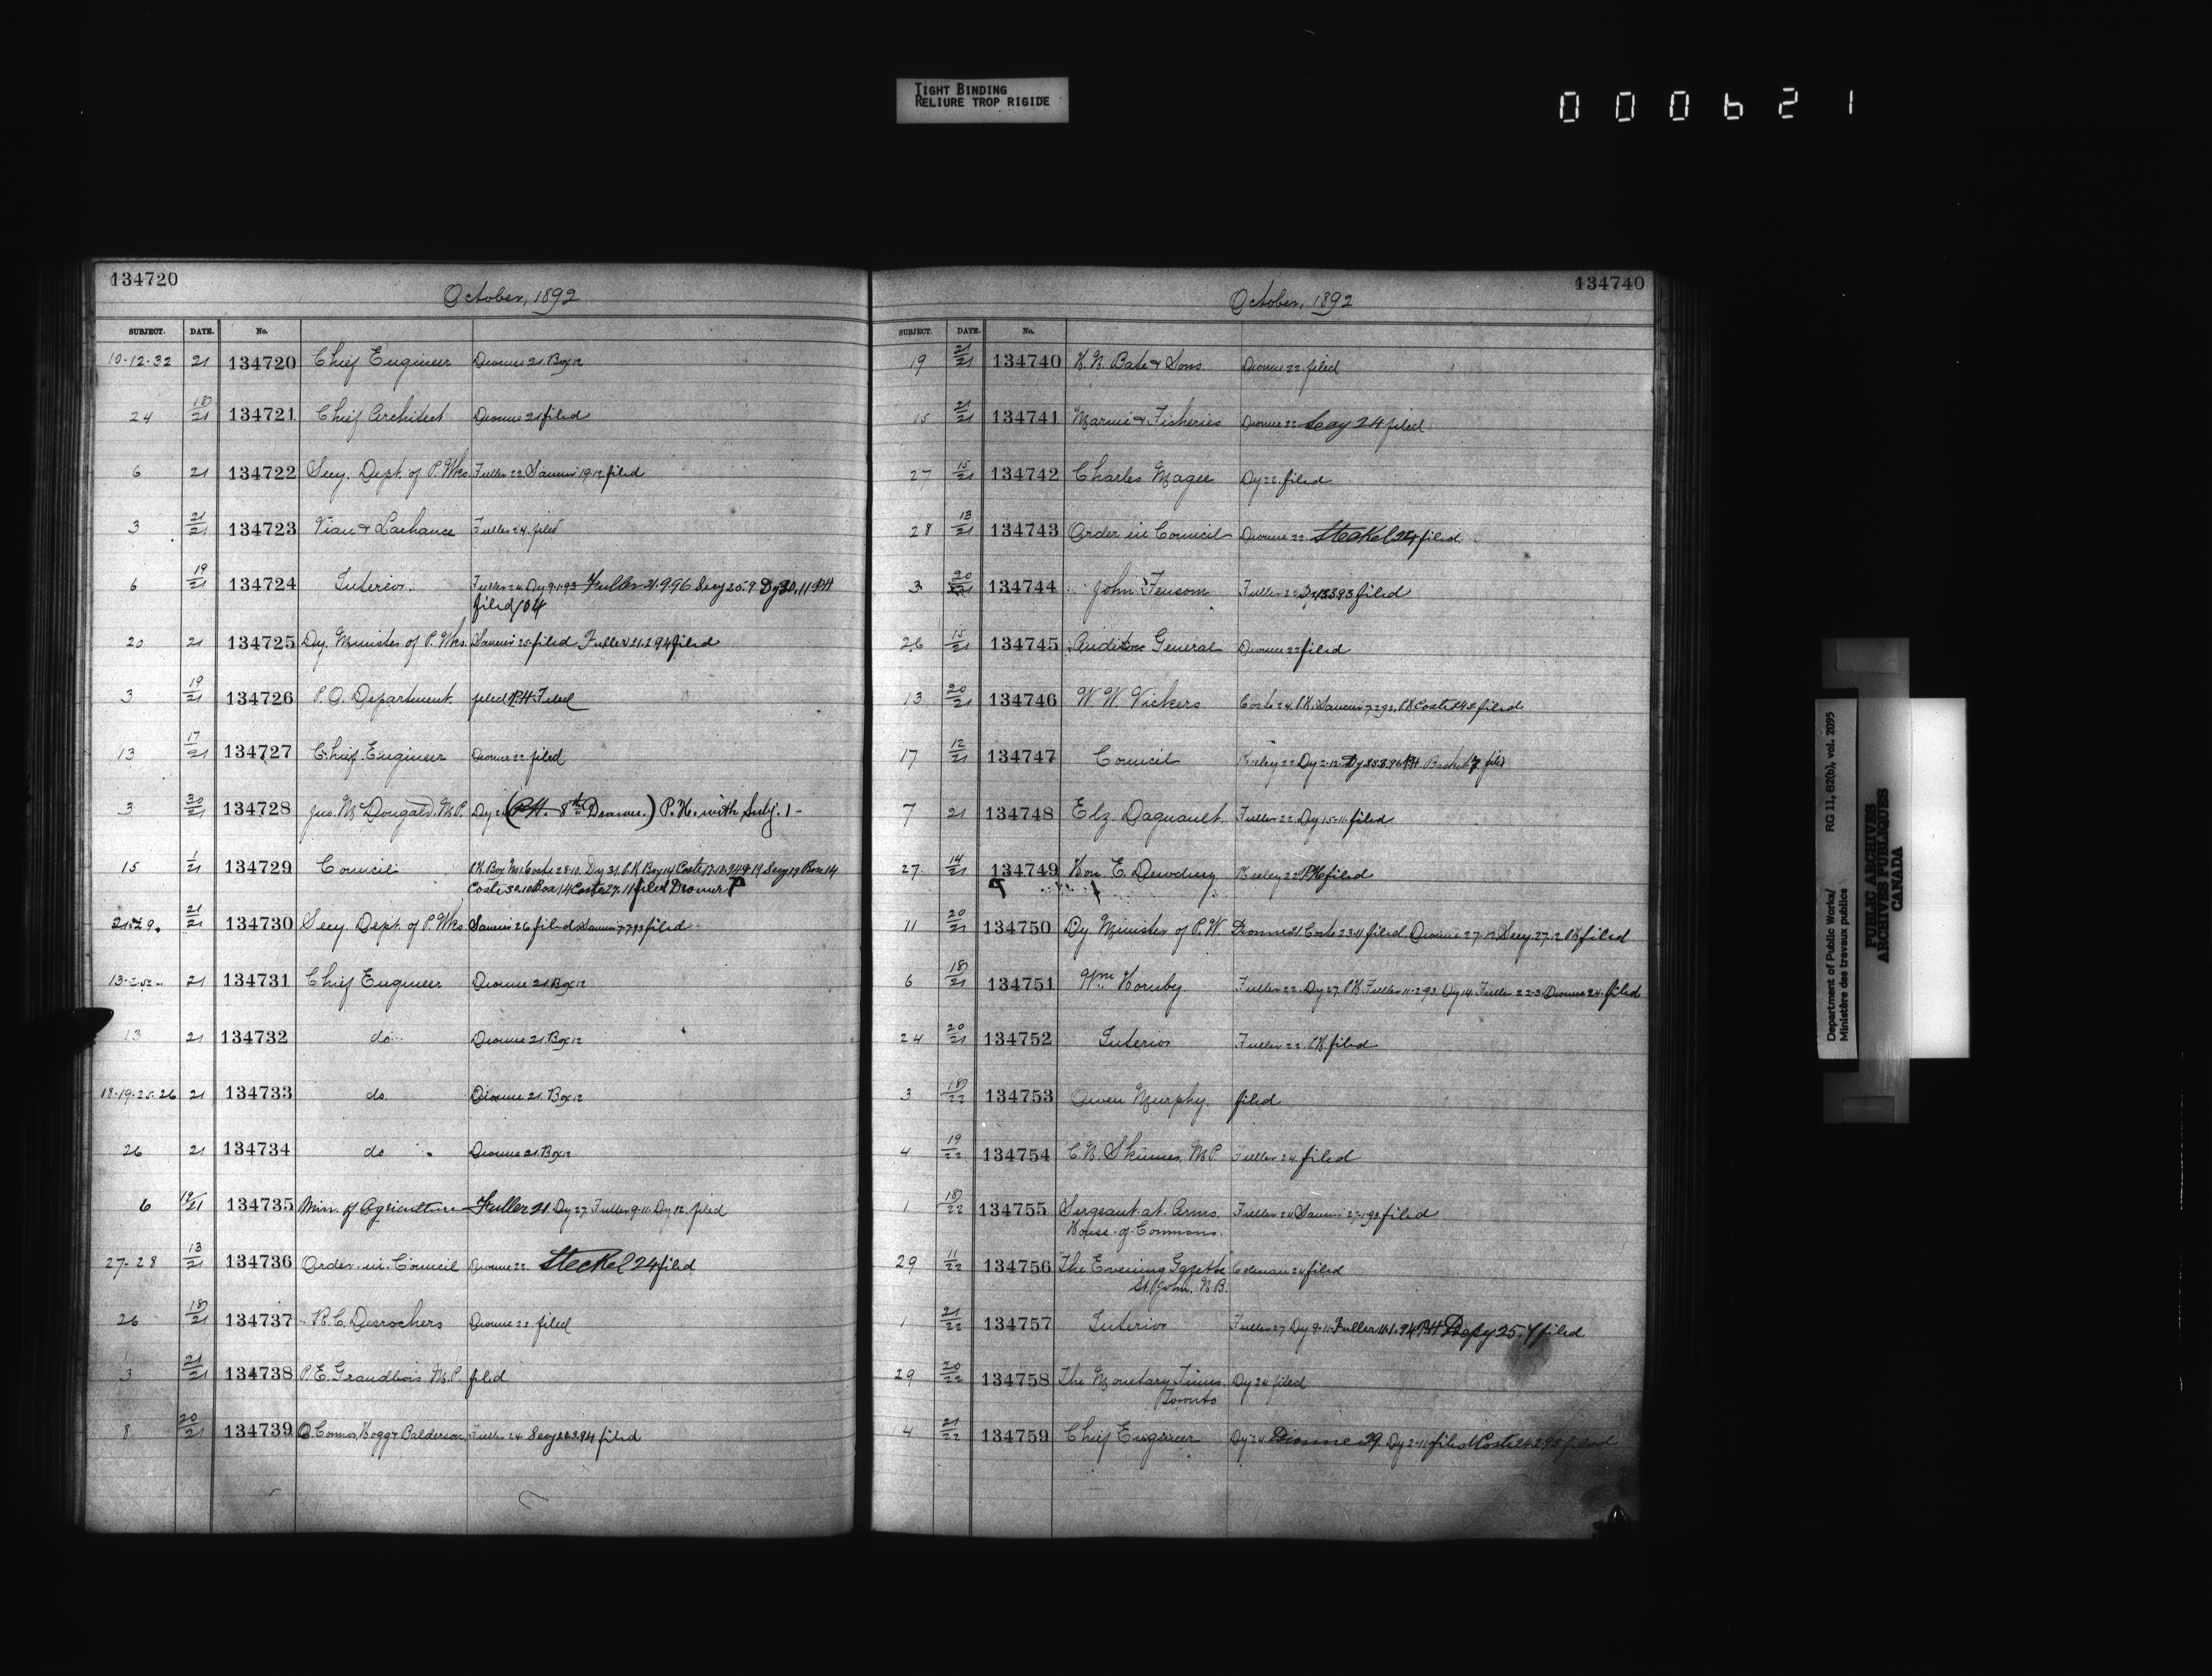 TIGHT BINDING
RELIURE TROP RIGIDE
000621
134720
October, 1892
SUBJECT. DATE. No.
10-12-32 21 134720 Chief Engineer Dionne 21. Box 12
24 18/21 134721 Chief Architect Dionne 21 filed
6 21 134722 Secy. Dept. of P. Wks. Fuller 22 19-12 filed
3 21/21 134723 Vian & Lachance Fuller 24. filed
6 19/21 134724 Interior. Fuller 24. Dy 9-1-93 Fuller 21.9.96 Secy 25.9 Dy 30.11 PH
filed/04
20 21 134725 Dy. Minister of P. Wks. filed Fuller 21.2.94 filed
3 19/21 134726 P.O. Department. filed P.H. Filed
13 17/21 134727 Chief Engineer Dionne 22. filed
3 20/21 134728 Jno. McDougald, M.P. Dy (P.H. 8th Drawer.) P.H. with Subj. 1 -
15 1/21 134729 Council
filed Dionne
21/21 134730 Secy. Dept. of P. Wks. 26 filed filed
21 134731 Chief Engineer Dionne 21 Box 12
13 21 134732 do. Dionne 21. Box 12
18-19-25-26 21 134733 do. Dionne 21. Box 12
26 21 134734 do Dionne 21. Box 12
6 19/21 134735 Min. of Agriculture Fuller 21 Dy 27 Fuller 9-11. Dy 12. filed
27-28 13/21 134736 Order in Council Dionne 22. Steckel 24 filed
26 18/21 134737 R.C. Desrochers Dionne 22 filed
3 21/21 134738 P.E. Grandbois M.P. filed
8 20/21 134739 O'Connor, Hogg & Balderson, Fuller 24. Secy filed
134740
October, 1892
SUBJECT. DATE. No.
19 21/21 134740 H.N. Bate & Sons. Dionne 22. filed
15 21/21 134741 Marine & Fisheries Dionne 22 Secy 24 filed
27 15/21 134742 Charles Magee Dy 22. filed
28 13/21 134743 Order in Council Dionne 22. Steckel 24 filed.
3 20/21 134744 John Fensom Fuller 22 filed
26 15/21 134745 Auditor General Dionne 22 filed
13 20/21 134746 W.W. Vickers Coste 24. P.H. filed
17 12/21 134747 Council
7 21 134748 Elz. Daguault. Fuller 22. Dy 15-11- filed
27 14/21 134749 Hon. E. Dewdney 22 PH filed
11 20/21 134750 Dy. Minister of P.W. Dionne 21. Coste 23-11 filed. Dionne 27-12 Secy. 27.12 PH filed
6 18/21 134751 Wm. Hornby. Fuller 22. Dy 27. P.H. Fuller 11-2-93. Dy 14. Fuller 22-3. Dionne 24. filed
24 20/21 134752 Interior Fuller 22. P.H. filed
3 18/22 134753 Owen Murphy. filed
4 19/22 134754 C.N. Skinner, M.P. Fuller 24. filed
1 18/22 134755 Sergeant-at-Arms. Fuller 24 filed
House of Commons.
29 11/22 134756 "The Evening Gazette" Coleman 24 filed
St. John. N.B.
1 21/22 134757 Interior Fuller 27 Dy 9-11- Fuller 11.1.94 PH Dep'y 25.4 filed
29 20/22 134758 The Monetary Times, Dy 24 filed
Toronto
14 21/22 134759 Chief Engineer Dy 24. Dionne 29. Dy 2-11 filed filed
Department of Public Works/ RG 11, B2(b), vol. 2095
Ministère des travaux publics
PUBLIC ARCHIVES
ARCHIVES PUBLIQUES
CANADA